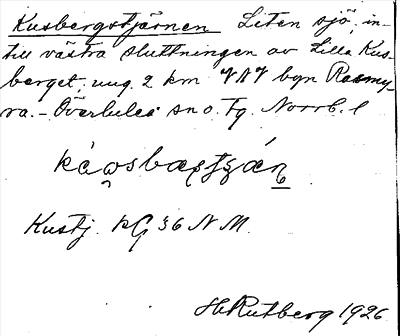 Kusbergstjärnen Liten sjö in-
till västra sluttningen av Lilla Kus-
berget, ung. 2 km VNV byn Rasmy-
ra. – Överluleå sn o. Tg. Norrb. l
Kustj. kG 36 N M.
H Rutberg 1926